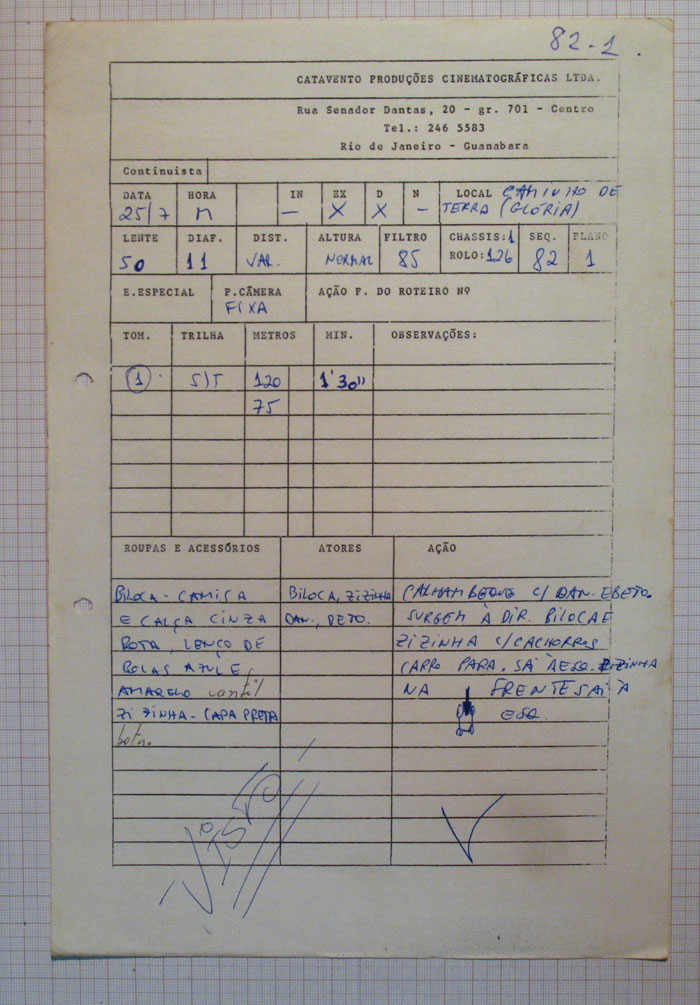 82-1
CATAVENTO PRODUÇÕES CINEMATOGRÁFICAS LTDA.
Rua Senador Dantas, 20 - gr. 701 - Centro
Tel.: 246 5583
Rio de Janeiro - Guanabara
Continuista
DATA HORA IN EX D N LOCAL CAMINHO DE
25/7 M – X X – TERRA (GLÓRIA)
LENTE DIAF. DIST. ALTURA FILTRO CHASSIS: 1 SEQ. PLANO
50 11 VAR. NORMAL 85 ROLO: 126 82 1
E.ESPECIAL P.CÂMERA AÇÃO F. DO ROTEIRO Nº
FIXA
TOM. TRILHA METROS MIN. OBSERVAÇÕES:
1 S/T 120 1'30"
75
ROUPAS E ACESSÓRIOS ATORES AÇÃO
BILOCA - CAMISA BILOCA, ZIZINHA CALHAMBEQUE C/ DAN. E BETO.
E CALÇA CINZA DAN., BETO. SURGEM À DIR. BILOCA E
BOTA, LENÇO DE ZIZINHA C/ CACHORROS
BOLAS AZUL E CARRO PARA. SÁ À ESQ. ZIZINHA
AMARELO cantil NA FRENTE SAI À
ZIZINHA - CAPA PRETA ESQ.
bota.
VISTO